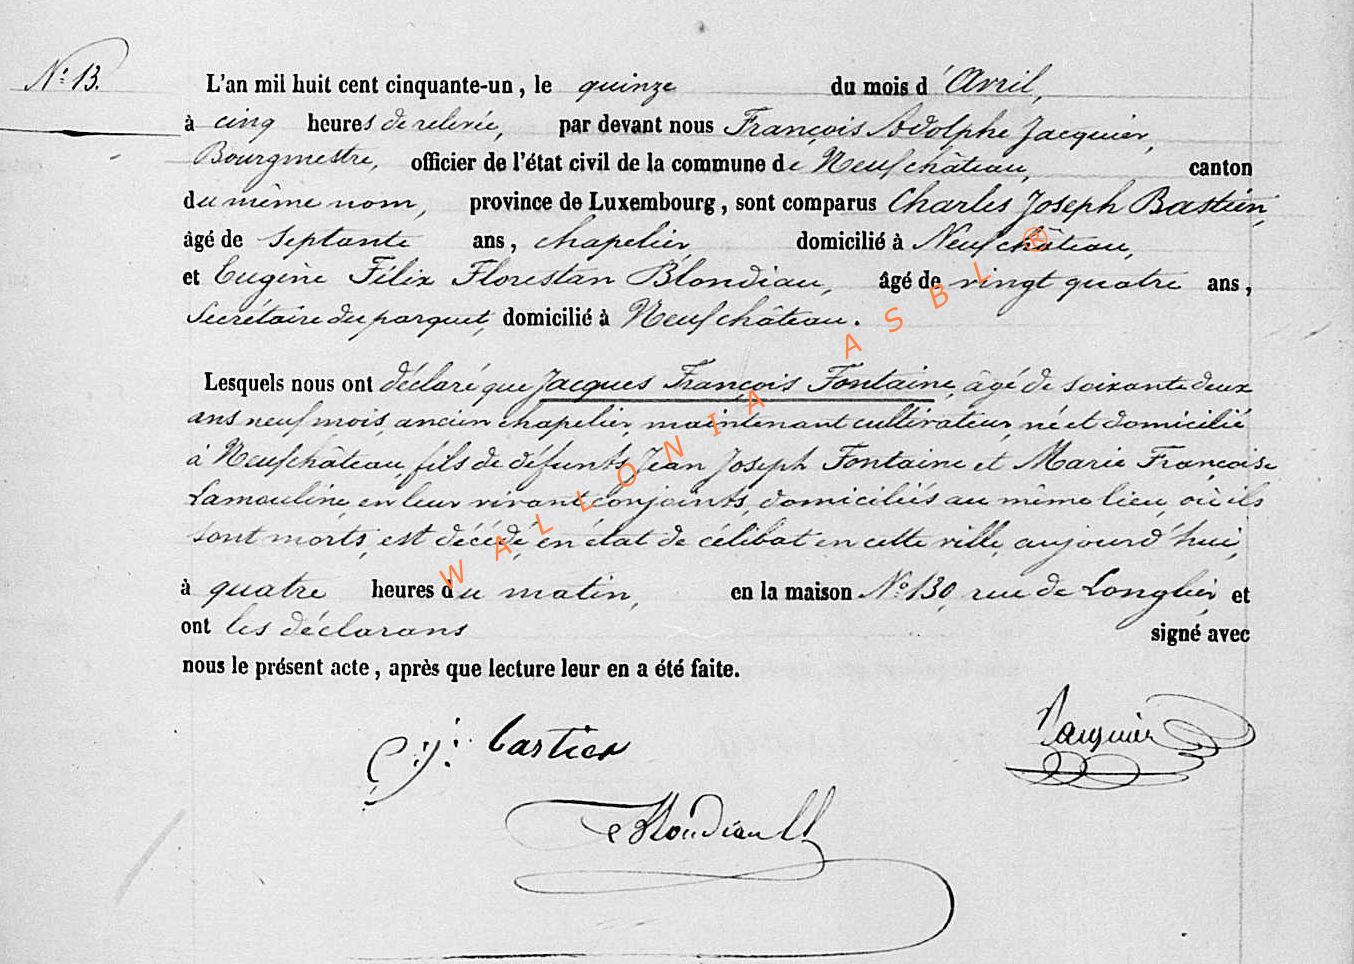 N° 13.
L'an mil huit cent cinquante-un, le quinze du mois d'Avril,
à cinq heures de relevée, par devant nous François Adolphe Jacquier,
Bourgmestre, officier de l'état civil de la commune de Neufchâteau, canton
du même nom, province de Luxembourg, sont comparus Charles Joseph Bastien,
âgé de septante ans, chapelier, domicilié à Neufchâteau,
et Eugène Félix Florestan Blondiau, âgé de vingt quatre ans,
Secrétaire du parquet, domicilié à Neufchâteau.
Lesquels nous ont déclaré que Jacques François Fontaine, âgé de soixante deux
ans neuf mois, ancien chapelier, maintenant cultivateur, né et domicilié
à Neufchâteau, fils de défunts Jean Joseph Fontaine et Marie Françoise
Lamouline, en leur vivant conjoints, domiciliés au même lieu, où ils
sont morts, est décédé, en état de célibat en cette ville, aujourd'hui,
à quatre heures du matin, en la maison N° 130, rue de Longlier, et
ont les déclarans signé avec
nous le présent acte, après que lecture leur en a été faite.
Jacquier
C. J. Bastien
Blondiau
WALLONIA ASBL ®